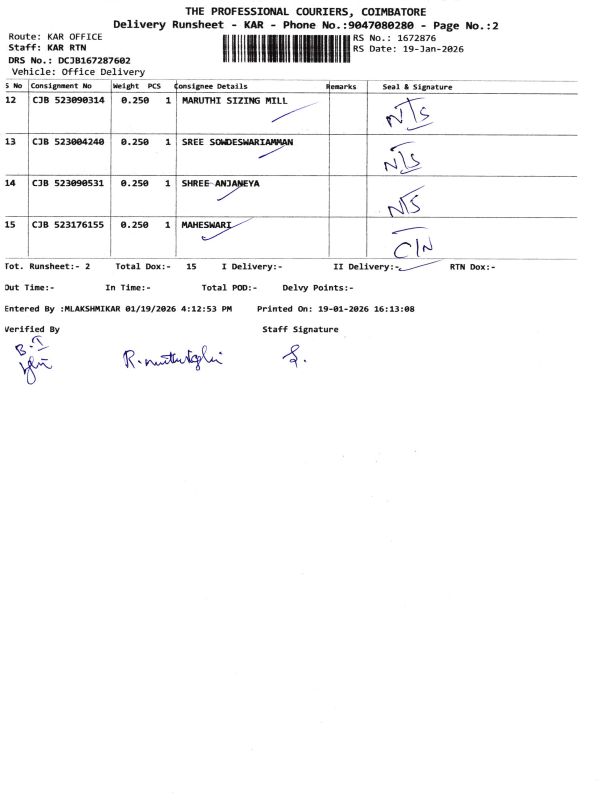 THE PROFESSIONAL COURIERS, COIMBATORE
Delivery Runsheet - KAR - Phone No.:9047080280 - Page No.:2
Route: KAR OFFICE RS No.: 1672876
Staff: KAR RTN RS Date: 19-Jan-2026
DRS No.: DCJB167287602
Vehicle: Office Delivery
S No Consignment No Weight PCS Consignee Details Remarks Seal & Signature
12 CJB 523090314 0.250 1 MARUTHI SIZING MILL NTS
13 CJB 523004240 0.250 1 SREE SOWDESWARIAMMAN NTS
14 CJB 523090531 0.250 1 SHREE ANJANEYA NTS
15 CJB 523176155 0.250 1 MAHESWARI C/N
Tot. Runsheet:- 2 Total Dox:- 15 I Delivery:- II Delivery:- RTN Dox:-
Out Time:- In Time:- Total POD:- Delvy Points:-
Entered By :MLAKSHMIKAR 01/19/2026 4:12:53 PM Printed On: 19-01-2026 16:13:08
Verified By Staff Signature